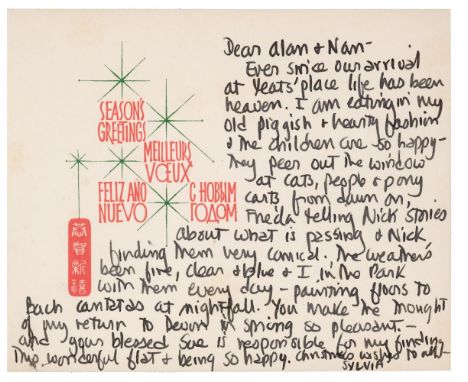 Dear Alan & Nan-
Ever since our arrival
at Yeats' place life has been
heaven. I am eating in my
old piggish & hearty fashion
& the children are so happy-
they peer out the window
at cats, people & pony
carts from dawn on,
Frieda telling Nick stories
about what is passing & Nick
finding them very comical. The weather's
been fine, clear & blue & I in the Park
with them every day - painting floors to
Bach cantatas at nightfall. You make the thought
of my return to Devon in spring so pleasant -
and your blessed Sue is responsible for my finding
this wonderful flat & being so happy. Christmas wishes to all -
SYLVIA
SEASON'S
GREETINGS
MEILLEURS
VŒUX
FELIZ AÑO
NUEVO
С НОВЫМ
ГОДОМ
恭
賀
新
禧